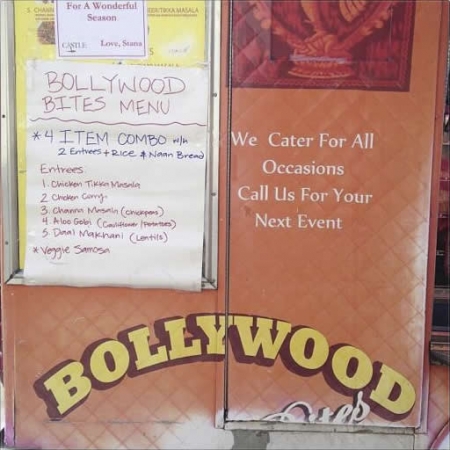 For A Wonderful
Season
Love, Stana
BOLLYWOOD
BITES MENU
* 4 ITEM COMBO w/
2 Entrees + Rice & Naan Bread
Entrees:
1. Chicken Tikka Masala
2. Chicken Curry
3. Channa Masala (Chickpeas)
4. Aloo Gobi (Cauliflower/Potatoes)
5. Daal Makhani (Lentils)
* Veggie Samosa
We Cater For All
Occasions
Call Us For Your
Next Event
BOLLYWOOD